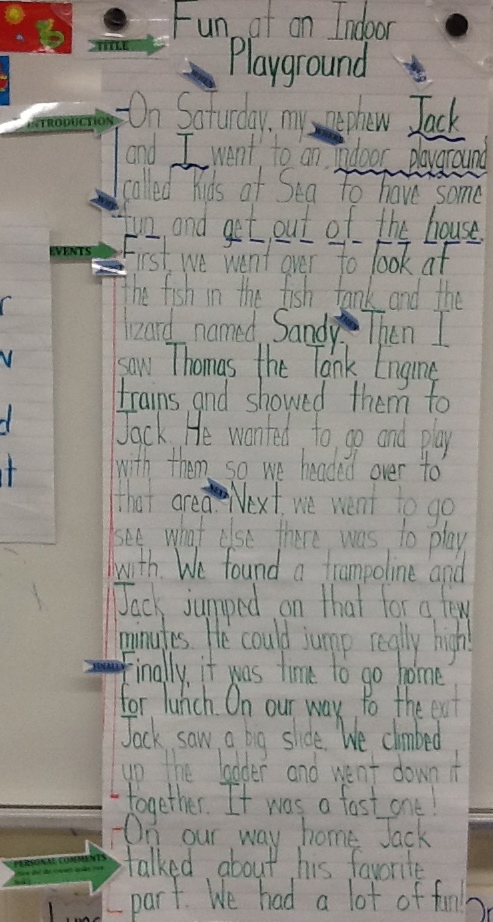 TITLE
Fun at an Indoor
Playground
INTRODUCTION
On Saturday, my nephew Jack
WHERE
and I went to an indoor playground
called Kids at Sea to have some
WHY
fun and get out of the house.
EVENTS
First, we went over to look at
the fish in the fish tank and the
lizard named Sandy. Then I
saw Thomas the Tank Engine
trains and showed them to
Jack. He wanted to go and play
with them, so we headed over to
that area. Next, we went to go
NEXT
see what else there was to play
with. We found a trampoline and
Jack jumped on that for a few
minutes. He could jump really high!
FINALLY
Finally, it was time to go home
for lunch. On our way to the exit
Jack saw a big slide. We climbed
up the ladder and went down it
together. It was a fast one!
On our way home Jack
PERSONAL COMMENTS
talked about his favorite
part. We had a lot of fun!